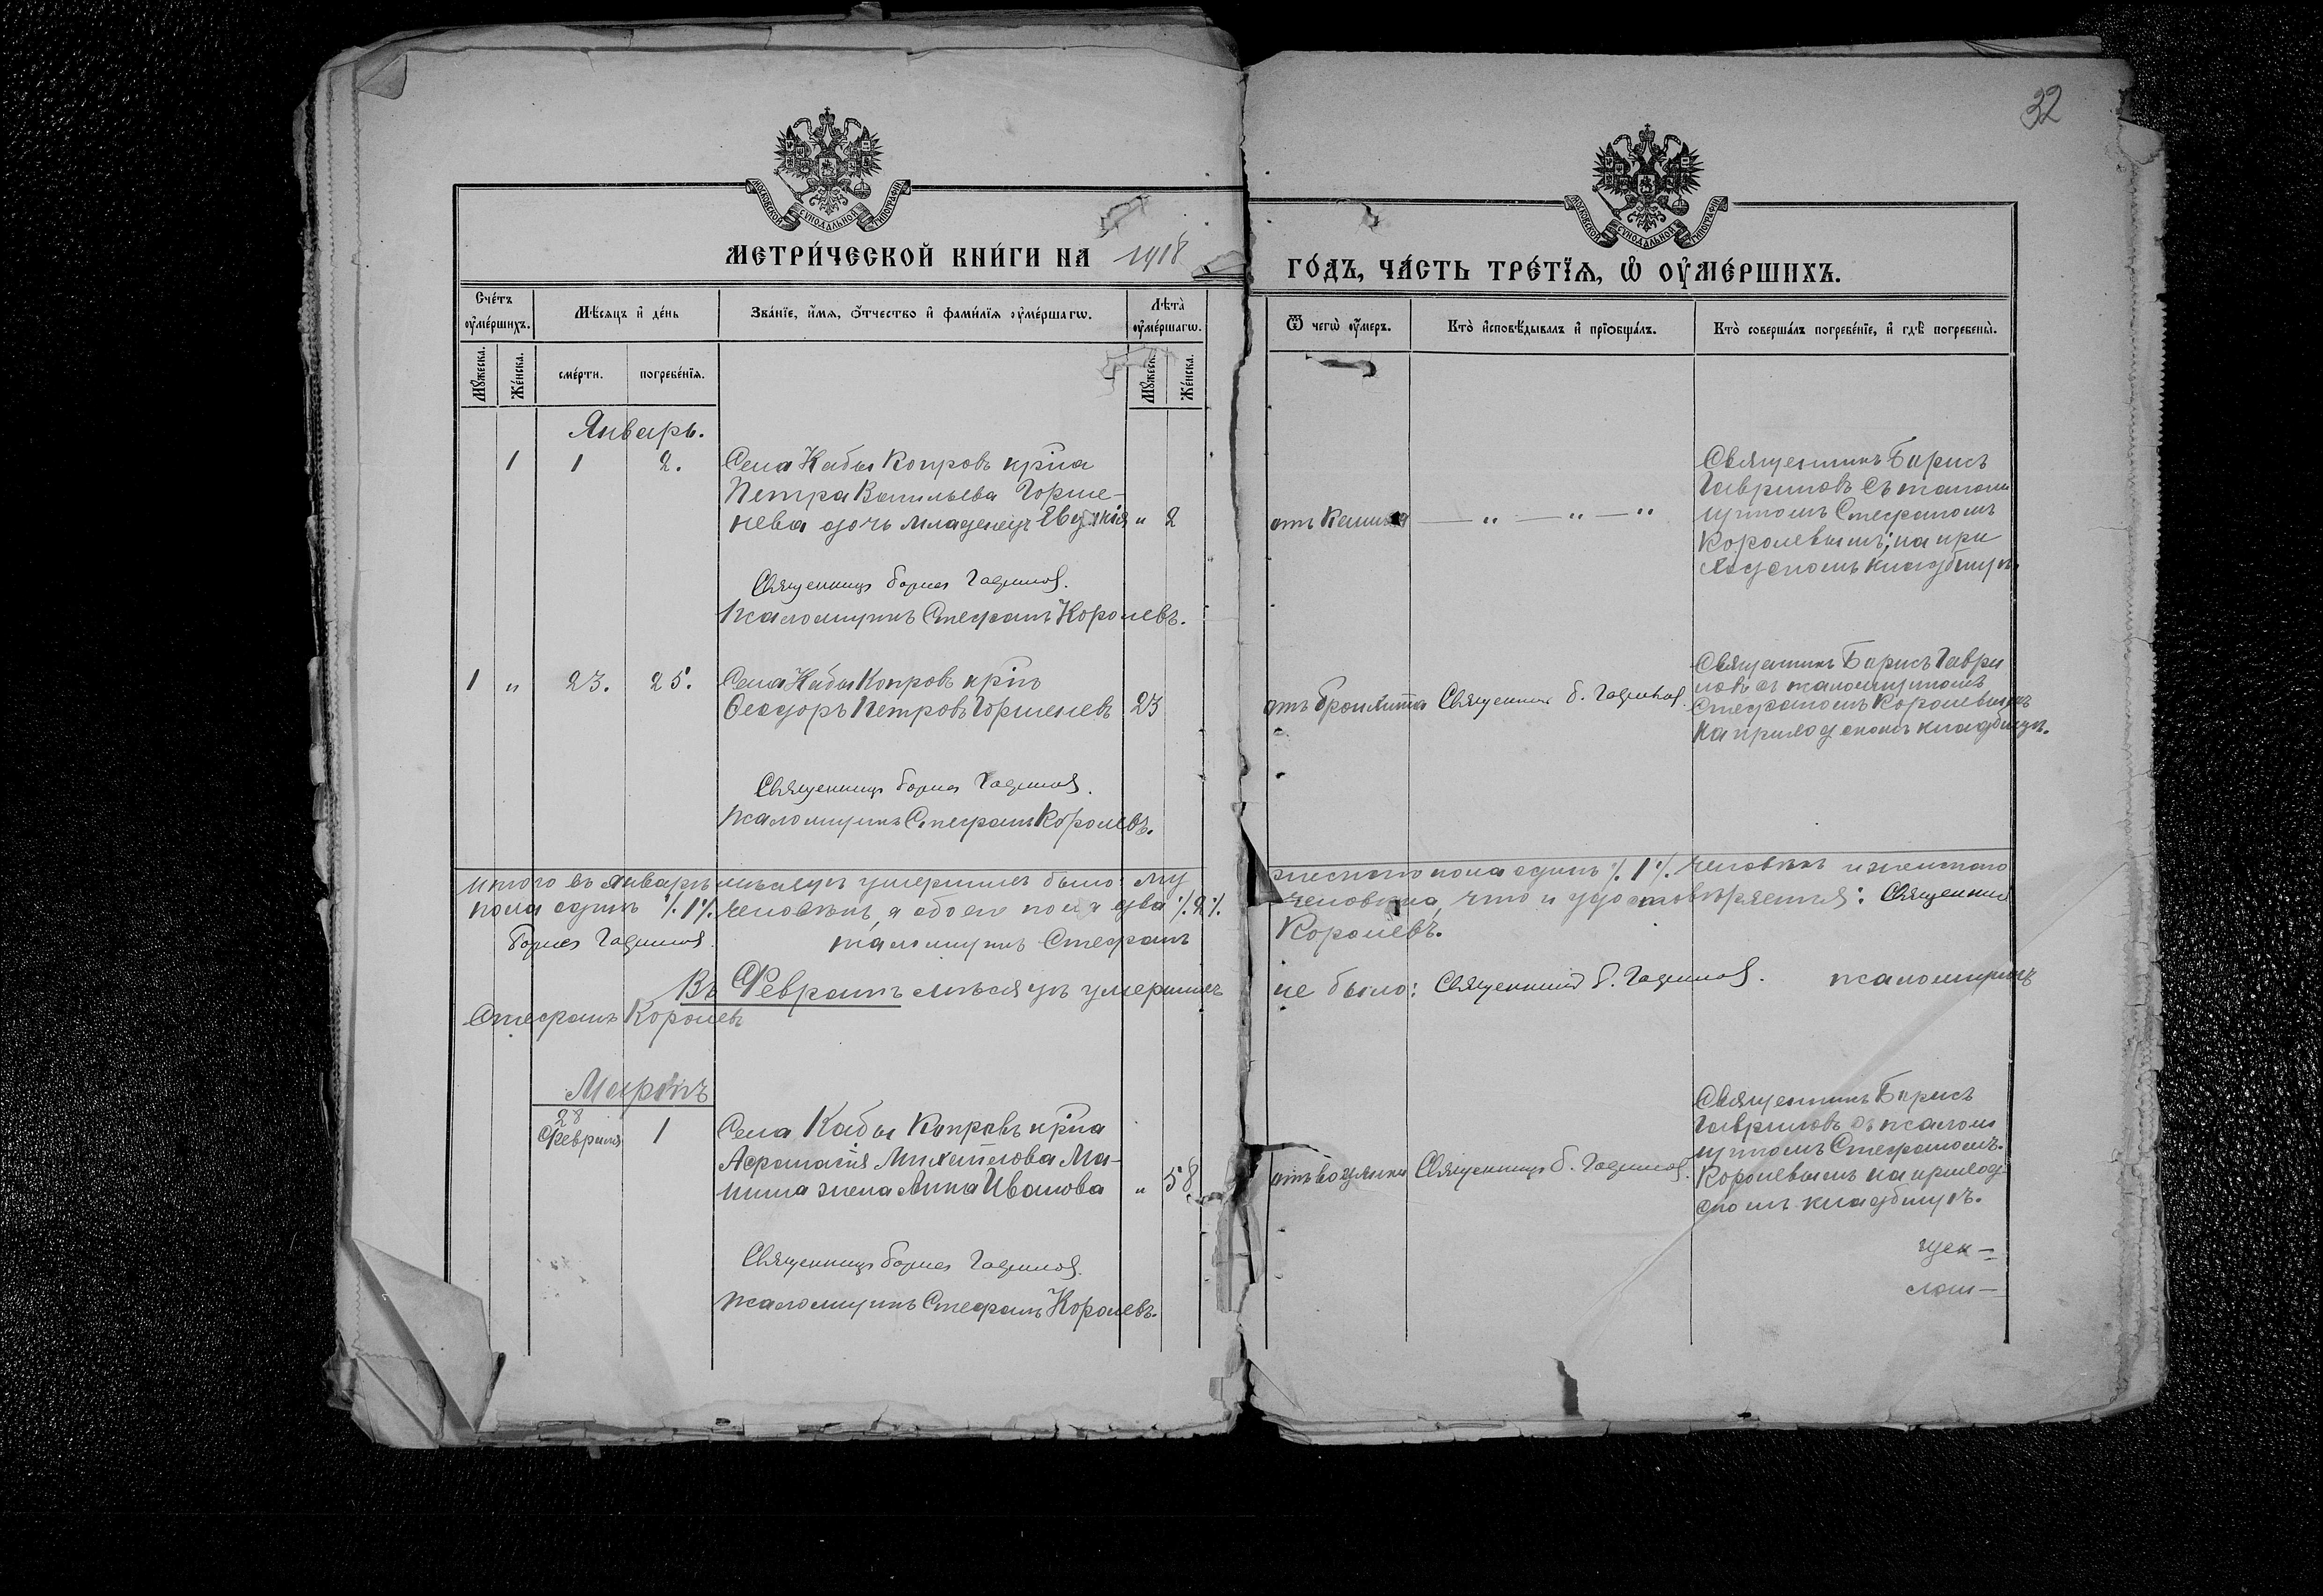 32
МОСКОВСКОЙ СУНОДАЛЬНОЙ ТИПОГРАФІИ
МОСКОВСКОЙ СУНОДАЛЬНОЙ ТИПОГРАФІИ
МЕТРИ́ЧЕСКОЙ КНИ́ГИ НА 1918
ГО́ДЪ, ЧА́СТЬ ТРЕ́ТЇѦ, Ѡ҆ ОУ҆МЕ́РШИХЪ.
Сче́тъ оу҆ме́ршихъ.
Мѣ́сяцъ и҆ де́нь
Зва́нїе, и҆́мя, ѻ҆́тчество и҆ фами́лїя оу҆ме́ршагѡ.
Лѣта̀ оу҆ме́ршагѡ.
Ѿ чегѡ̀ оу҆́меръ.
Кто̀ и҆сповѣ́дывалъ и҆ прїѡбща́лъ.
Кто̀ соверша́лъ погребе́нїе, и҆ гдѣ̀ погребены̀.
Мꙋ́жеска.
Же́нска.
сме́рти.
погребе́нїя.
Мꙋ́жеск.
Же́нска.
Январь.
1 1 2. Села Кабы Копровъ крⷭ҇на
Петра Васильева Горше-
нева дочь младенецъ Евдокія „ 2
отъ Кашля — „ — „ — „
Священникъ Борисъ
Гавриловъ съ псалом
щикомъ Стефаномъ
Королевымъ, на при
ходскомъ кладбищѣ.
Священникъ Борисъ Гаврилов.
Псаломщикъ Стефанъ Королевъ.
1 „ 23. 25. Села Кабы Копровъ крⷭ҇нъ
Ѳеодоръ Петровъ Горшеневъ 23
отъ Священникъ Б. Гаврилов.
Священникъ Борисъ Гаври
ловъ съ псаломщикомъ
Стефаномъ Королевымъ
на приходскомъ кладбищѣ.
Священникъ Борис Гаврилов.
Псаломщикъ Стефанъ Королевъ.
Итого въ Январѣ мѣсяцѣ умершихъ было: му
жескаго пола одинъ ٪ 1 ٪ человѣкъ и женскаго
пола одинъ ٪ 1 ٪ человѣкъ, а обоего пола два ٪ 2 ٪
человѣка, что и удостовѣряется: Священник
Борис Гаврилов. псаломщикъ Стефанъ
Королевъ.
Въ Февралѣ мѣсяцѣ умершихъ
не было: Священник Б. Гаврилов. псаломщикъ
Стефанъ Королевъ
Мартъ
28
Февраля 1 Села Кабы Копровъ крⷭ҇на
Афанасія Михайлова Ма-
нина жена Анна Иванова „ 58
Священникъ Б. Гаврилов.
Священникъ Борисъ
Гавриловъ съ псалом
щикомъ Стефаномъ
Королевымъ на приход
скомъ кладбищѣ.
Священникъ Борис Гаврилов.
Псаломщикъ Стефанъ Королевъ.